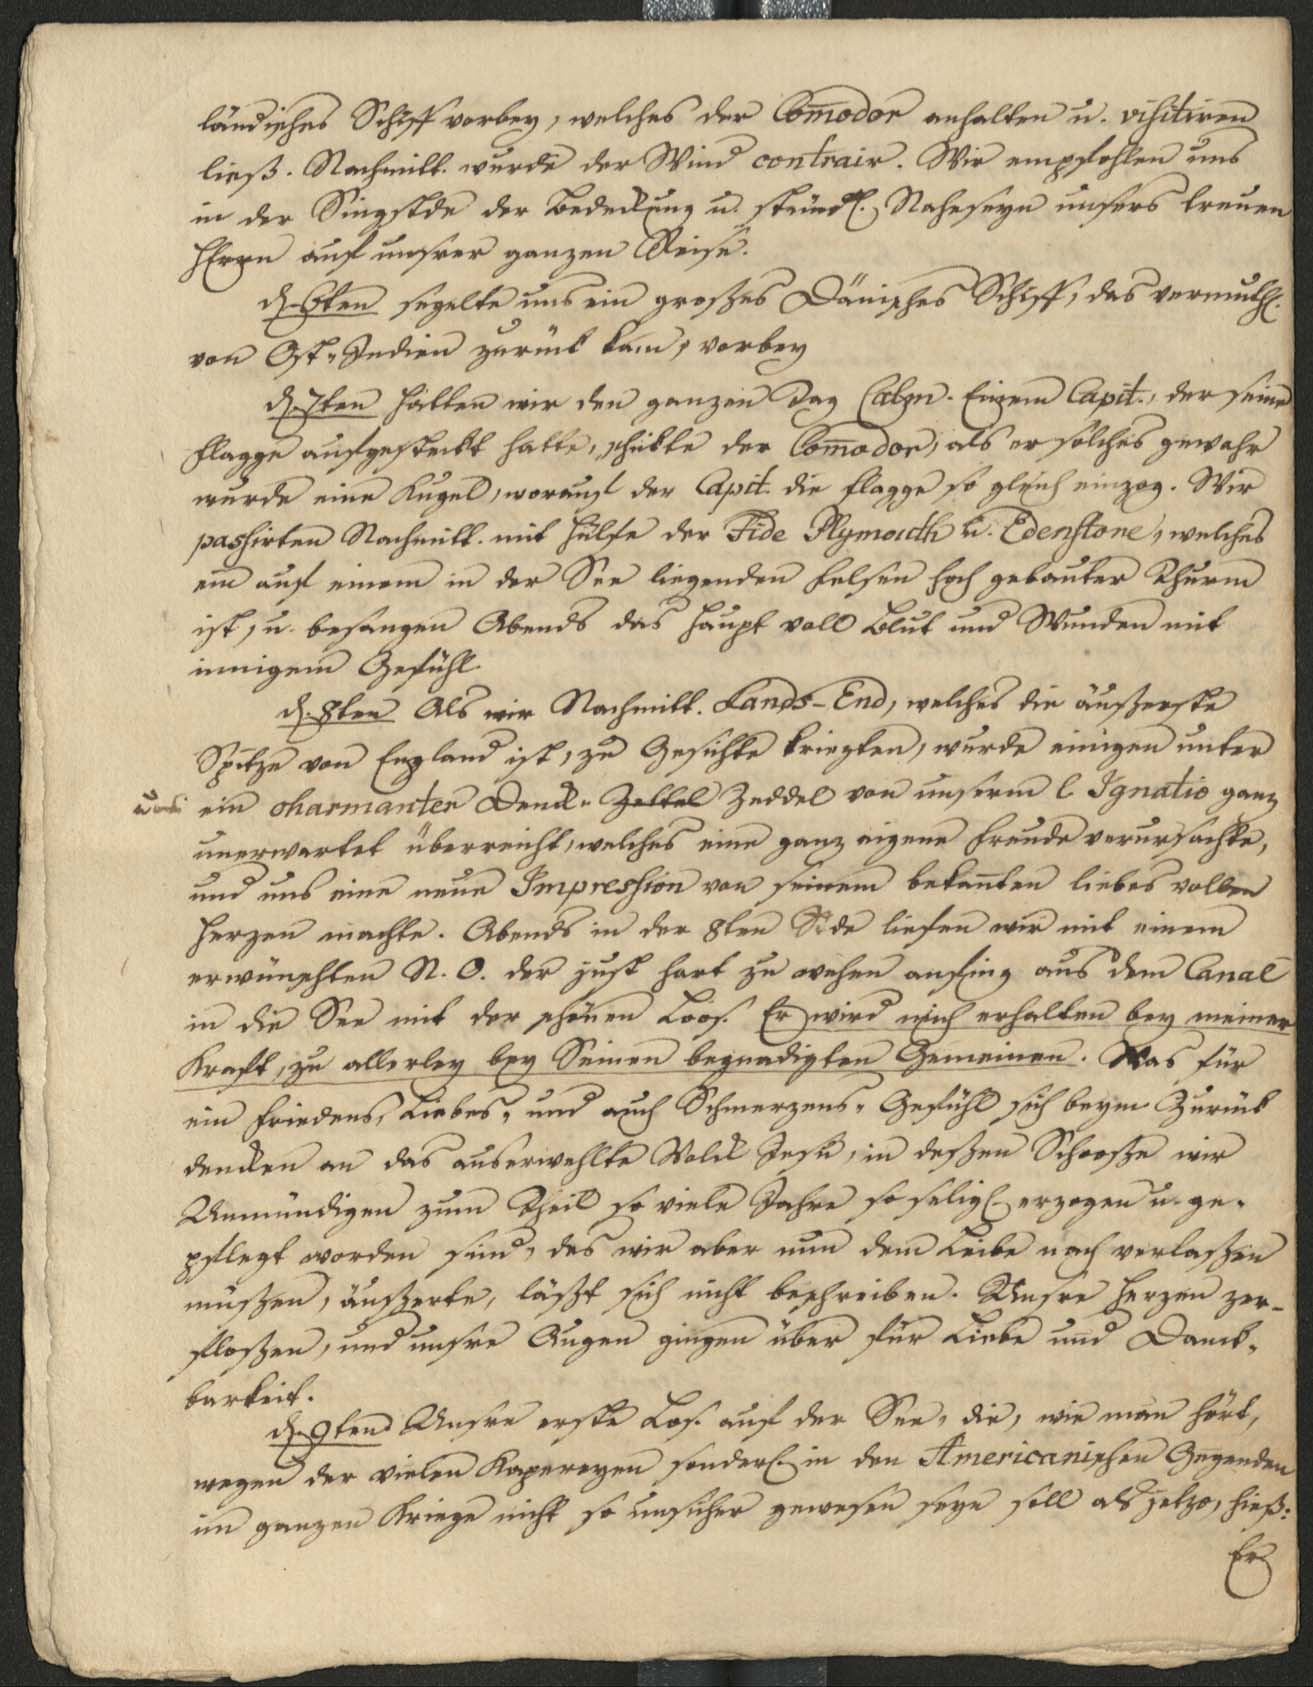 ländisches Schiff vorbey, welches der Com̅odor anhalten u. visitiren
ließ. Nachmitt. wurde der Wind contrair. Wir empfohlen uns
in der Singstde der Bedeckung u. stündl. Naheseyn unsers treuen
HErrn auf unsrer ganzen Reise.
d. 6ten segelte uns ein großes Dänisches Schiff, das vermuthl.
von Ost-Indien zurück kam, vorbey
d. 7ten hatten wir den ganzen Tag Calm. Einem Capit., der seine
Flagge aufgesteckt hatte, schickte der Com̅odor, als er solches gewahr
wurde eine Kugel, worauf der Capit. die Flagge so gleich einzog. Wir
passirten Nachmitt. mit Hülfe der Tide Plymouth u. Edenstone, welches
ein auf einem in der See liegenden Felsen hoch gebauter Thurm
ist, u. besangen Abends das Haupt voll Blut und Wunden mit
innigem Gefühl.
d. 8ten Als wir Nachmitt. Lands-End, welches die äußerste
Spitze von England ist, zu Gesichte kriegten, wurde einigen unter
uns ein charmanter Denck- Zettel Zeddel von unserm l. Ignatio ganz
unerwartet überreicht, welches eine ganz eigene Freude verursachte,
und uns eine neue Impression von seinem bekan̅ten liebes vollen
Herzen machte. Abends in der 8ten Stde liefen wir mit einem
erwünschten N. O. der just hart zu wehen anfing aus dem Canal
in die See mit der schönen Loos. Er wird mich erhalten bey meiner
Kraft, zu allerley bey Seinen begnadigten Gemeinen. Was für
ein Friedens, Liebes- und auch Schmerzens-Gefühl sich beym Zurück
dencken an das auserwehlte Volck Jesu, in deßen Schooße wir
Unmündigen zum Theil so viele Jahre so selig erzogen u. ge-
pflegt worden sind, das wir aber nun dem Leibe nach verlaßen
müßen, äußerte, läßt sich nicht beschreiben. Unsre Herzen zer-
floßen, und unsre Augen gingen über für Liebe und Danck-
barkeit.
d. 9ten Unsre erste Los. auf der See, die, wie man hört,
wegen der vielen Kapereyen sonderl. in den Americanischen Gegenden
im ganzen Kriege nicht so unsicher gewesen seyn soll als jetzo, hieß:
Er